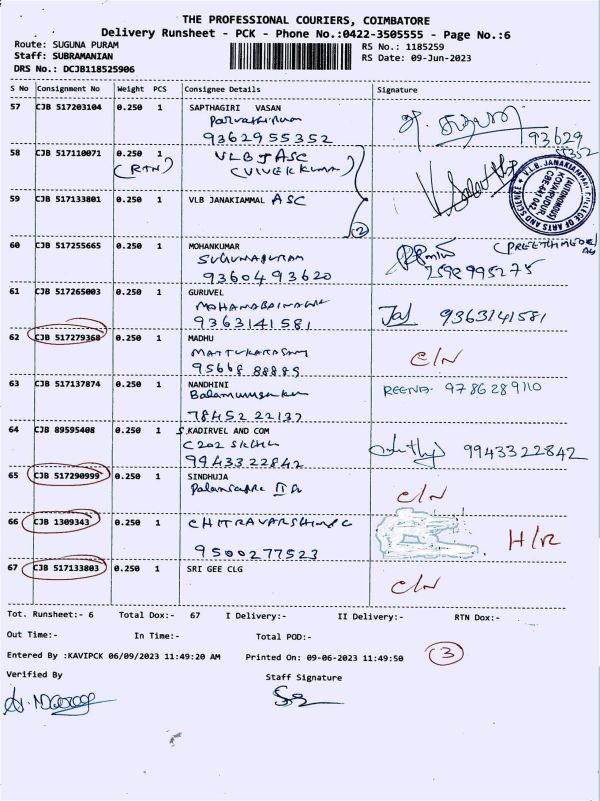 THE PROFESSIONAL COURIERS, COIMBATORE
Delivery Runsheet - PCK - Phone No.:0422-3505555 - Page No.:6
Route: SUGUNA PURAM
RS No.: 1185259
Staff: SUBRAMANIAN
RS Date: 09-Jun-2023
DRS No.: DCJB118525906
S No Consignment No Weight PCS Consignee Details Signature
57 CJB 517203104 0.250 1 SAPTHAGIRI VASAN
9362955352
93629
58 CJB 517110071 0.250 1 VLB J ASC
(RTN) (VIVEK KUMAR)
V.L.B. JANAKIAMMAL COLLEGE OF ARTS AND SCIENCE
(AUTONOMOUS)
KOVAIPUDUR
CBE-641 042
59 CJB 517133801 0.250 1 VLB JANAKIAMMAL ASC
(2)
60 CJB 517255665 0.250 1 MOHANKUMAR
SUGUNAPURAM
9360493620
7598995275
61 CJB 517265003 0.250 1 GURUVEL
9363141581
9363141581
62 CJB 517279368 0.250 1 MADHU
C/N
95668 88889
63 CJB 517137874 0.250 1 NANDHINI REENA. 9786289110
78452 22137
64 CJB 89595408 0.250 1 S.KADIRVEL AND COM
C202
9943322842 9943322842
65 CJB 517290999 0.250 1 SINDHUJA
C/N
66 CJB 1309343 0.250 1
H/R
9500277523
67 CJB 517133803 0.250 1 SRI GEE CLG
C/N
Tot. Runsheet:- 6 Total Dox:- 67 I Delivery:- II Delivery:- RTN Dox:-
Out Time:- In Time:- Total POD:-
Entered By :KAVIPCK 06/09/2023 11:49:20 AM Printed On: 09-06-2023 11:49:50 (3)
Verified By Staff Signature